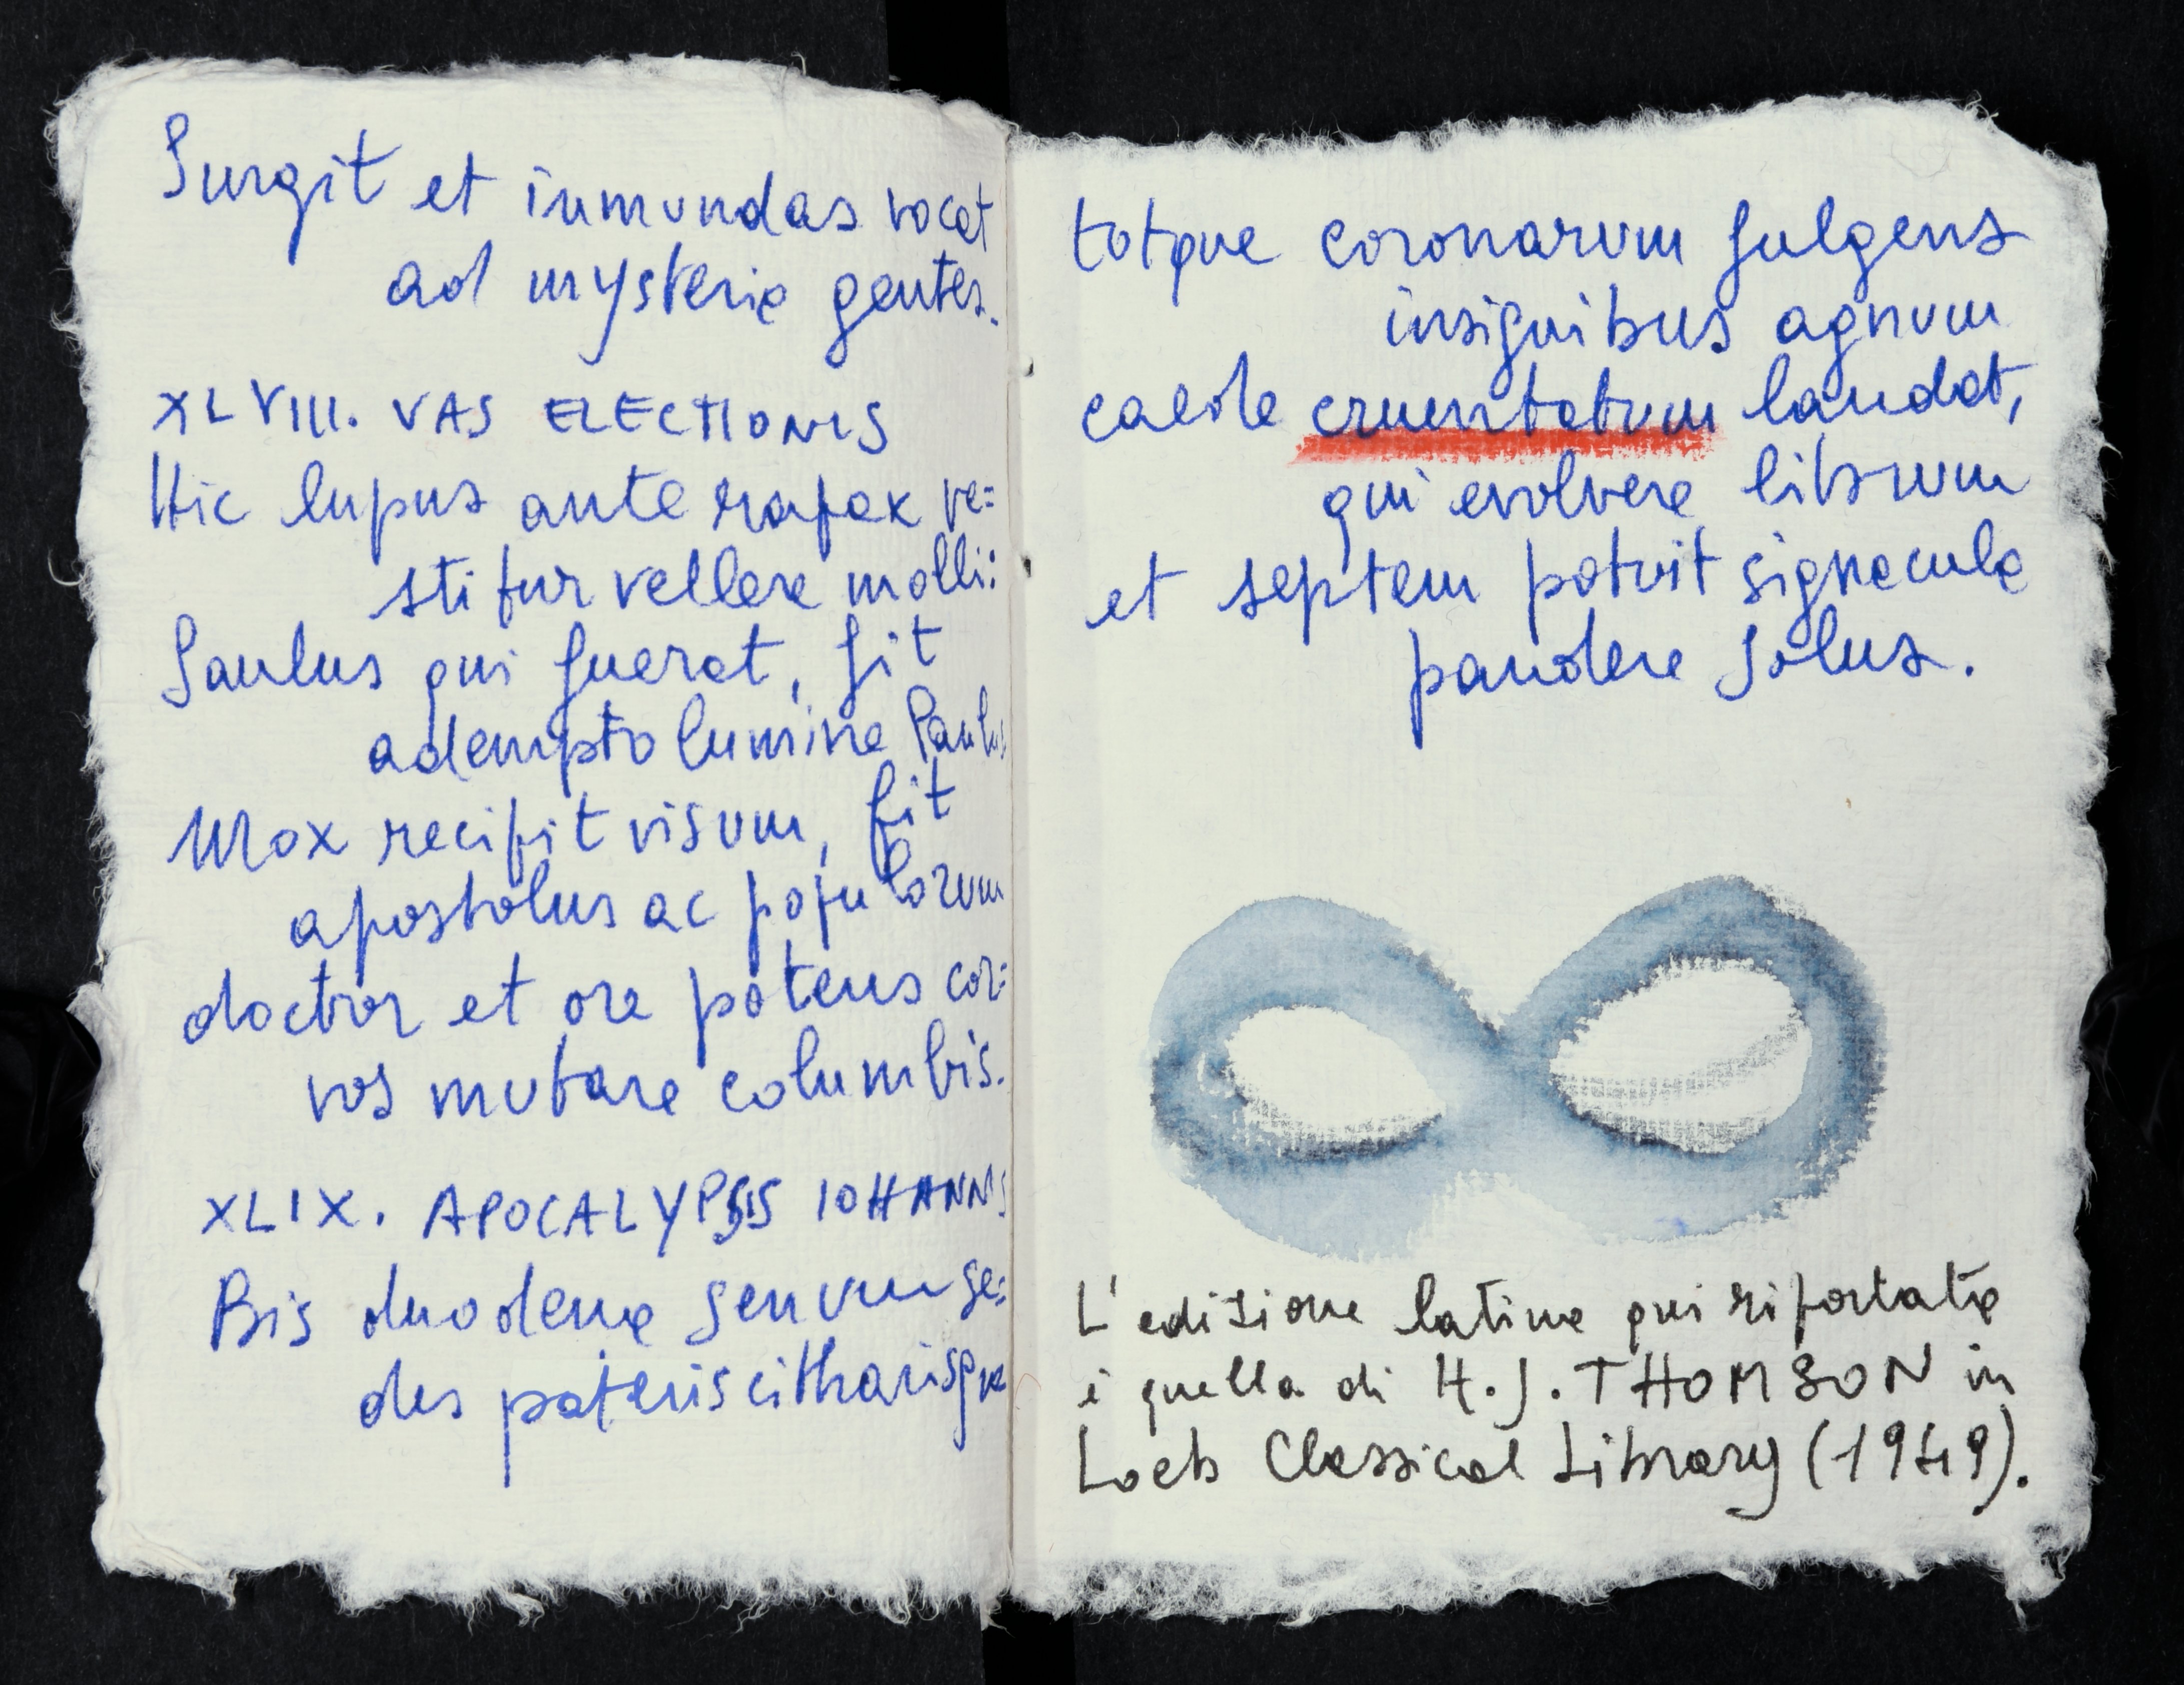 Surgit et inmundas vocat
ad mysteria gentes.
XLVIII. VAS ELECTIONIS
Hic lupus ante rapax ve=
stitur vellere molli:
Saulus qui fuerat, fit
adempto lumine Paulus
Mox recipit visum, fit
apostolus ac populorum
doctor et ore potens cor=
vos mutare columbis.
XLIX. APOCALYPSIS IOHANNIS
Bis duodena senum se=
des pateris citharisque
totque coronarum fulgens
insignibus agnum
caede cruentatum laudat,
qui evolvere librum
et septem potuit signacula
pandere solus.
L'edizione latina qui riportata
è quella di H.J. THOMSON in
Loeb Classical Library (1949).